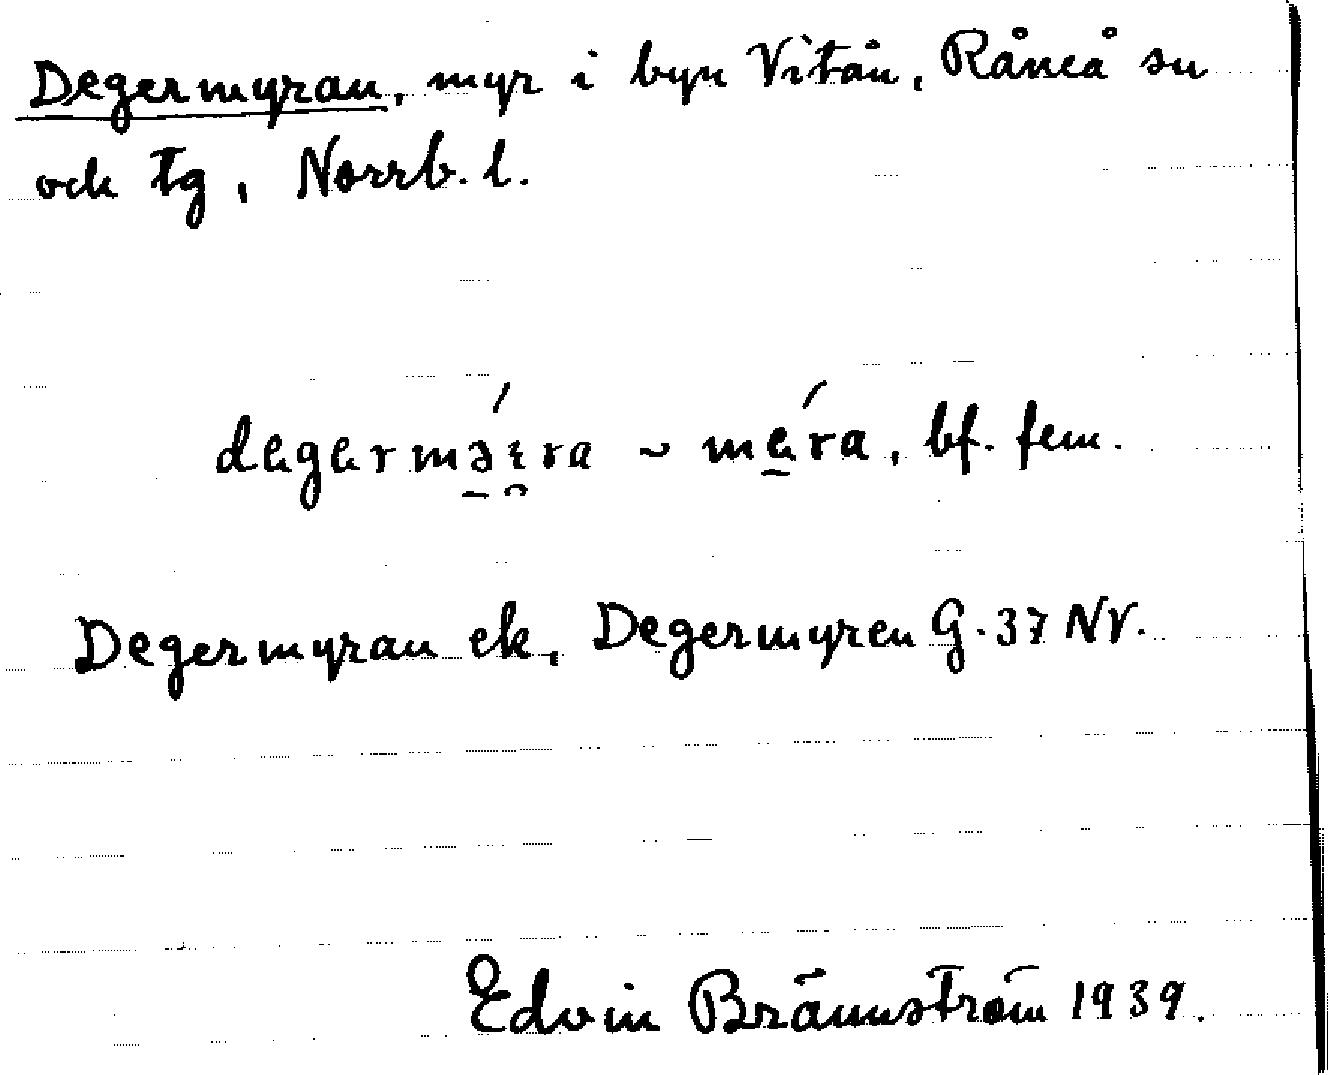 Degermyran, myr i byn Vitån, Råneå sn
och tg, Norrb. l.
degermə̱́i̯ra ~ mé̱ra, bf. fem.
Degermyran ek, Degermyren G. 37 NV.
Edvin Brännström 1939.